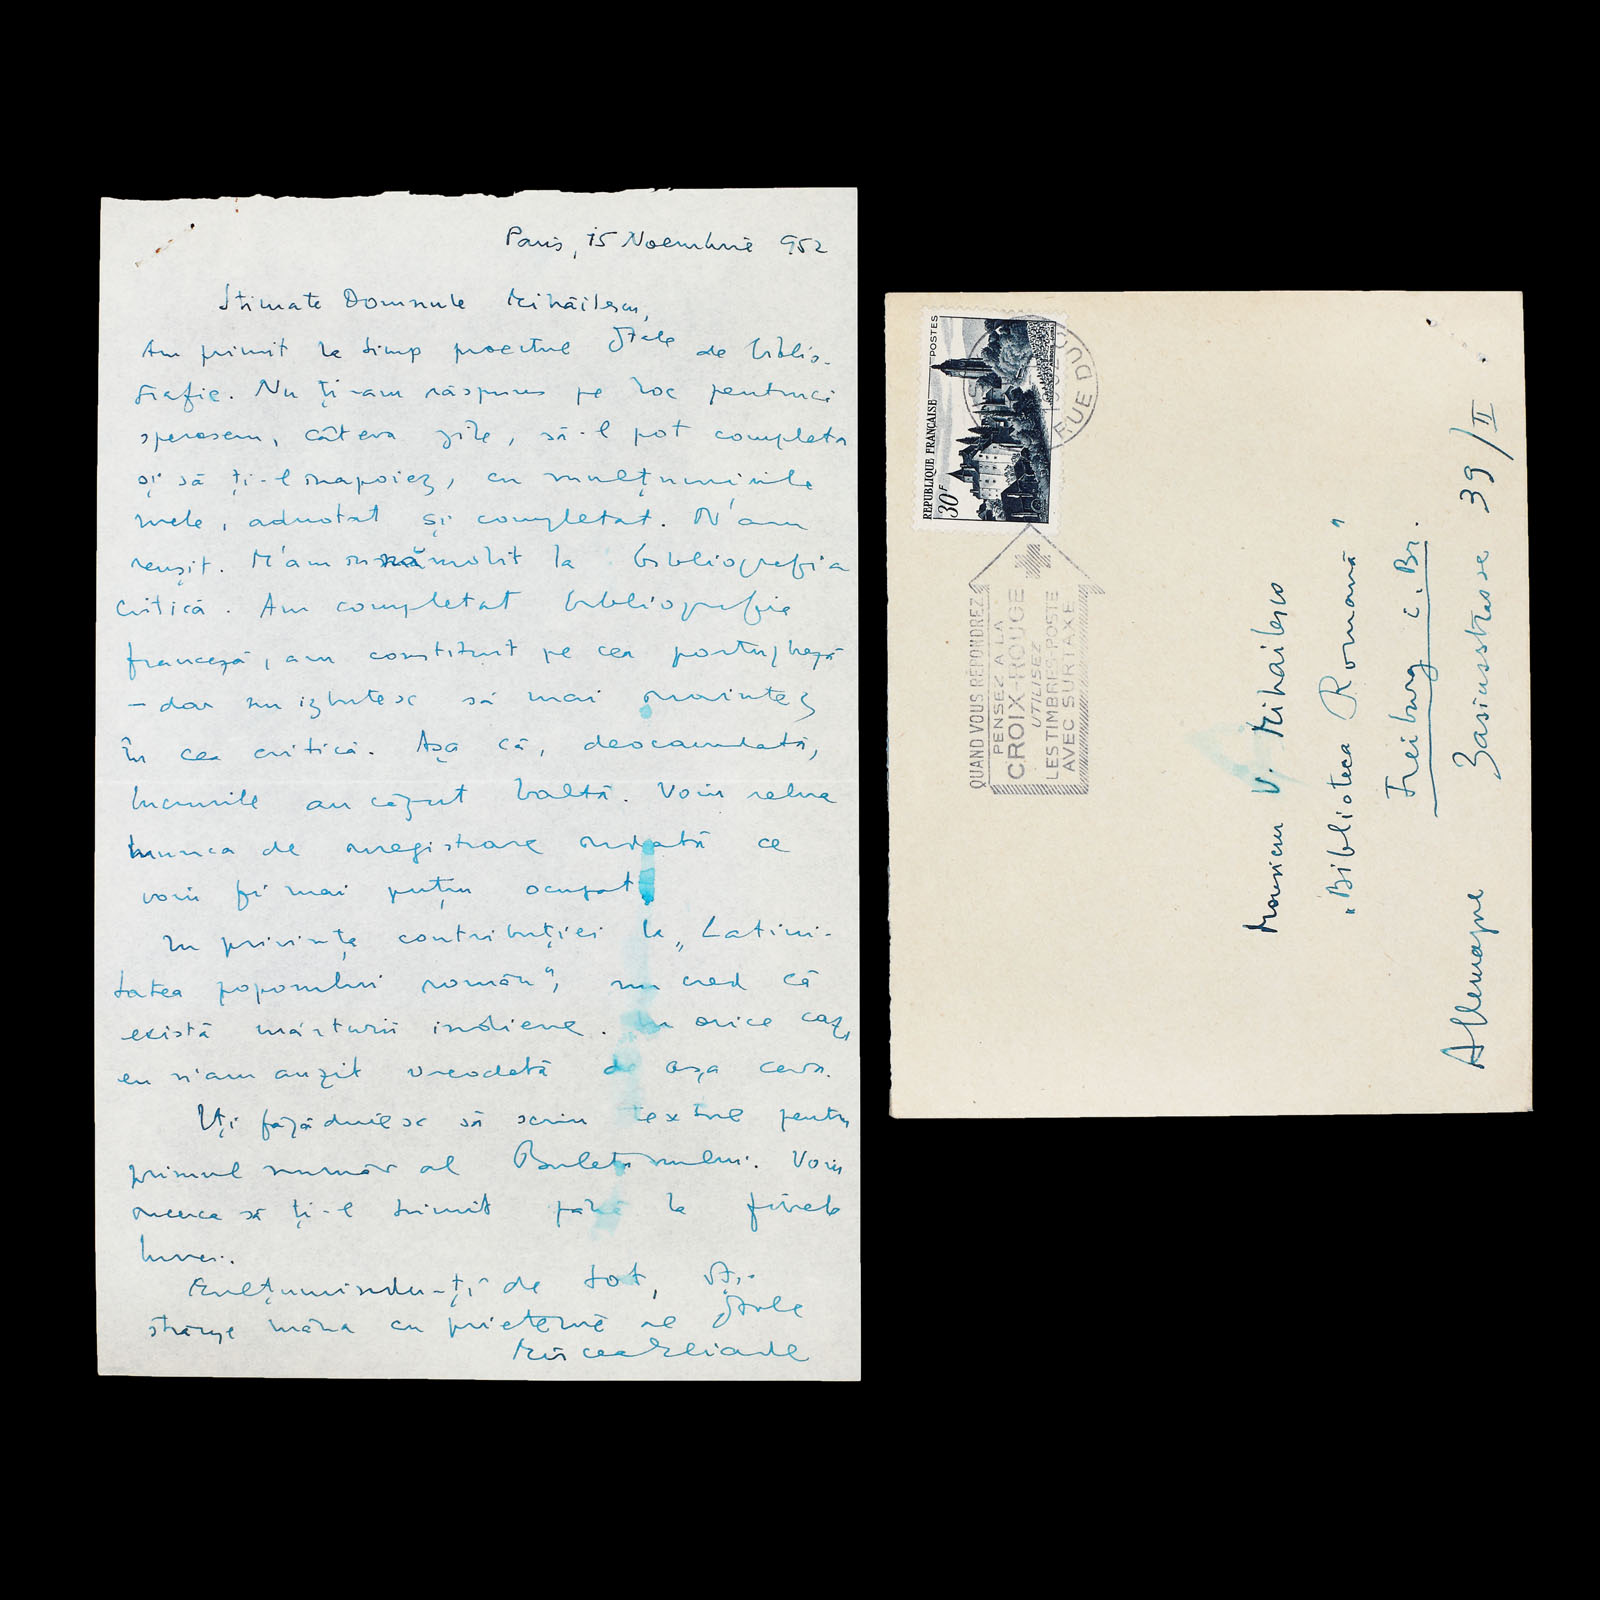 Paris, 15 Noembrie 952
Stimate Domnule Mihăilescu,
Am primit la timp proectul D-tale de biblio-
grafie. Nu ți-am răspuns pe loc pentrucă
sperasem, câteva zile, să-l pot completa
și să ți-l înapoiez, cu mulțumirile
mele, adnotat și completat. N'am
reușit. M'am înnămolit la bibliografia
critică. Am completat bibliografia
franceză, am constituit pe cea portugheză
- dar nu izbutesc să mai înaintez
în cea critică. Așa că, deocamdată,
lucrurile au căzut baltă. Voiu relua
munca de înregistrare îndată ce
voiu fi mai puțin ocupat.
În privința contribuției la „Latini-
tatea poporului român", nu cred că
există mărturii indiene. În orice caz,
eu n'am auzit vreodată de așa ceva.
Îți făgăduiesc să scriu textul pentru
primul număr al Buletinului. Voiu
încerca să ți-l trimit până la finele
lunei.
Mulțumindu-ți de tot, îți
strânge mâna cu prietenie al D-tale
Mircea Eliade
REPUBLIQUE FRANÇAISE
POSTES
30F
RUE DU
QUAND VOUS RÉPONDREZ
PENSEZ A LA
CROIX-ROUGE
UTILISEZ
LES TIMBRES-POSTE
AVEC SURTAXE
Monsieur V. Mihailesco
„Biblioteca Română"
Freiburg i. Br.
Zasiusstrasse 39/II
Allemagne